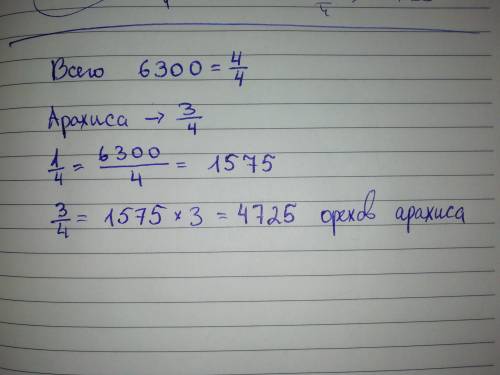 Всего 6300 = 4/4
Арахиса → 3/4
1/4 = 6300/4 = 1575
3/4 = 1575 × 3 = 4725 орехов арахиса